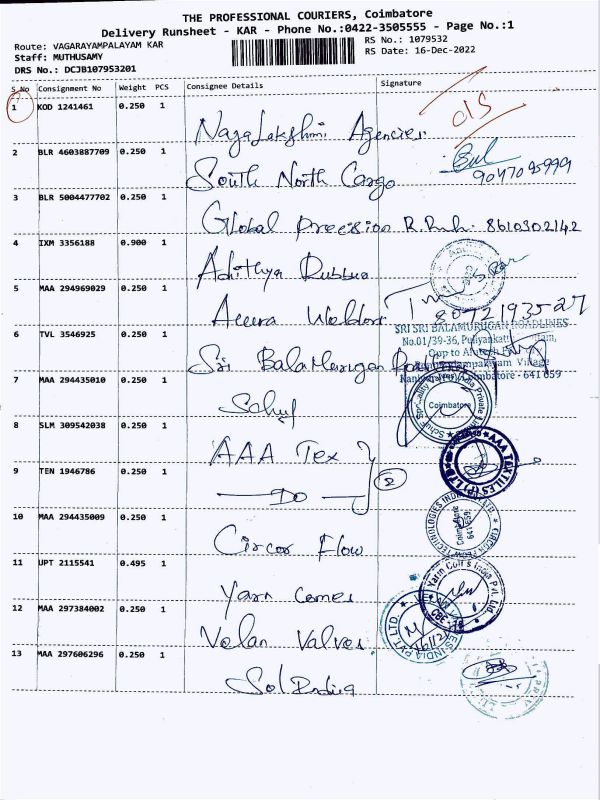 THE PROFESSIONAL COURIERS, Coimbatore
Delivery Runsheet - KAR - Phone No.:0422-3505555 - Page No.:1
Route: VAGARAYAMPALAYAM KAR
RS No.: 1079532
Staff: MUTHUSAMY
RS Date: 16-Dec-2022
DRS No.: DCJB107953201
S.No Consignment No Weight PCS Consignee Details Signature
1 KOD 1241461 0.250 1
NagaLakshmi Agencies
2 BLR 4603887709 0.250 1
South North Cargo
3 BLR 5004477702 0.250 1
Global Precision 8610302142
4 IXM 3356188 0.900 1
Adithya
5 MAA 294969029 0.250 1
8072193527
6 TVL 3546925 0.250 1
Sri BalaMurugan
SRI SRI BALAMURUGAN ROADLINES
No.01/39-36,
Opp to
Village
Coimbatore - 641 659
7 MAA 294435010 0.250 1
Coimbatore
8 SLM 309542038 0.250 1
AAA Tex
AAA TEXTILES (P) LTD
9 TEN 1946786 0.250 1
Do 2
10 MAA 294435009 0.250 1
Circor Flow
Coimbatore
641 659
11 UPT 2115541 0.495 1
Yarn Cones
Yarn Con's India Pvt. Ltd.
12 MAA 297384002 0.250 1
Velan Valves
13 MAA 297606296 0.250 1